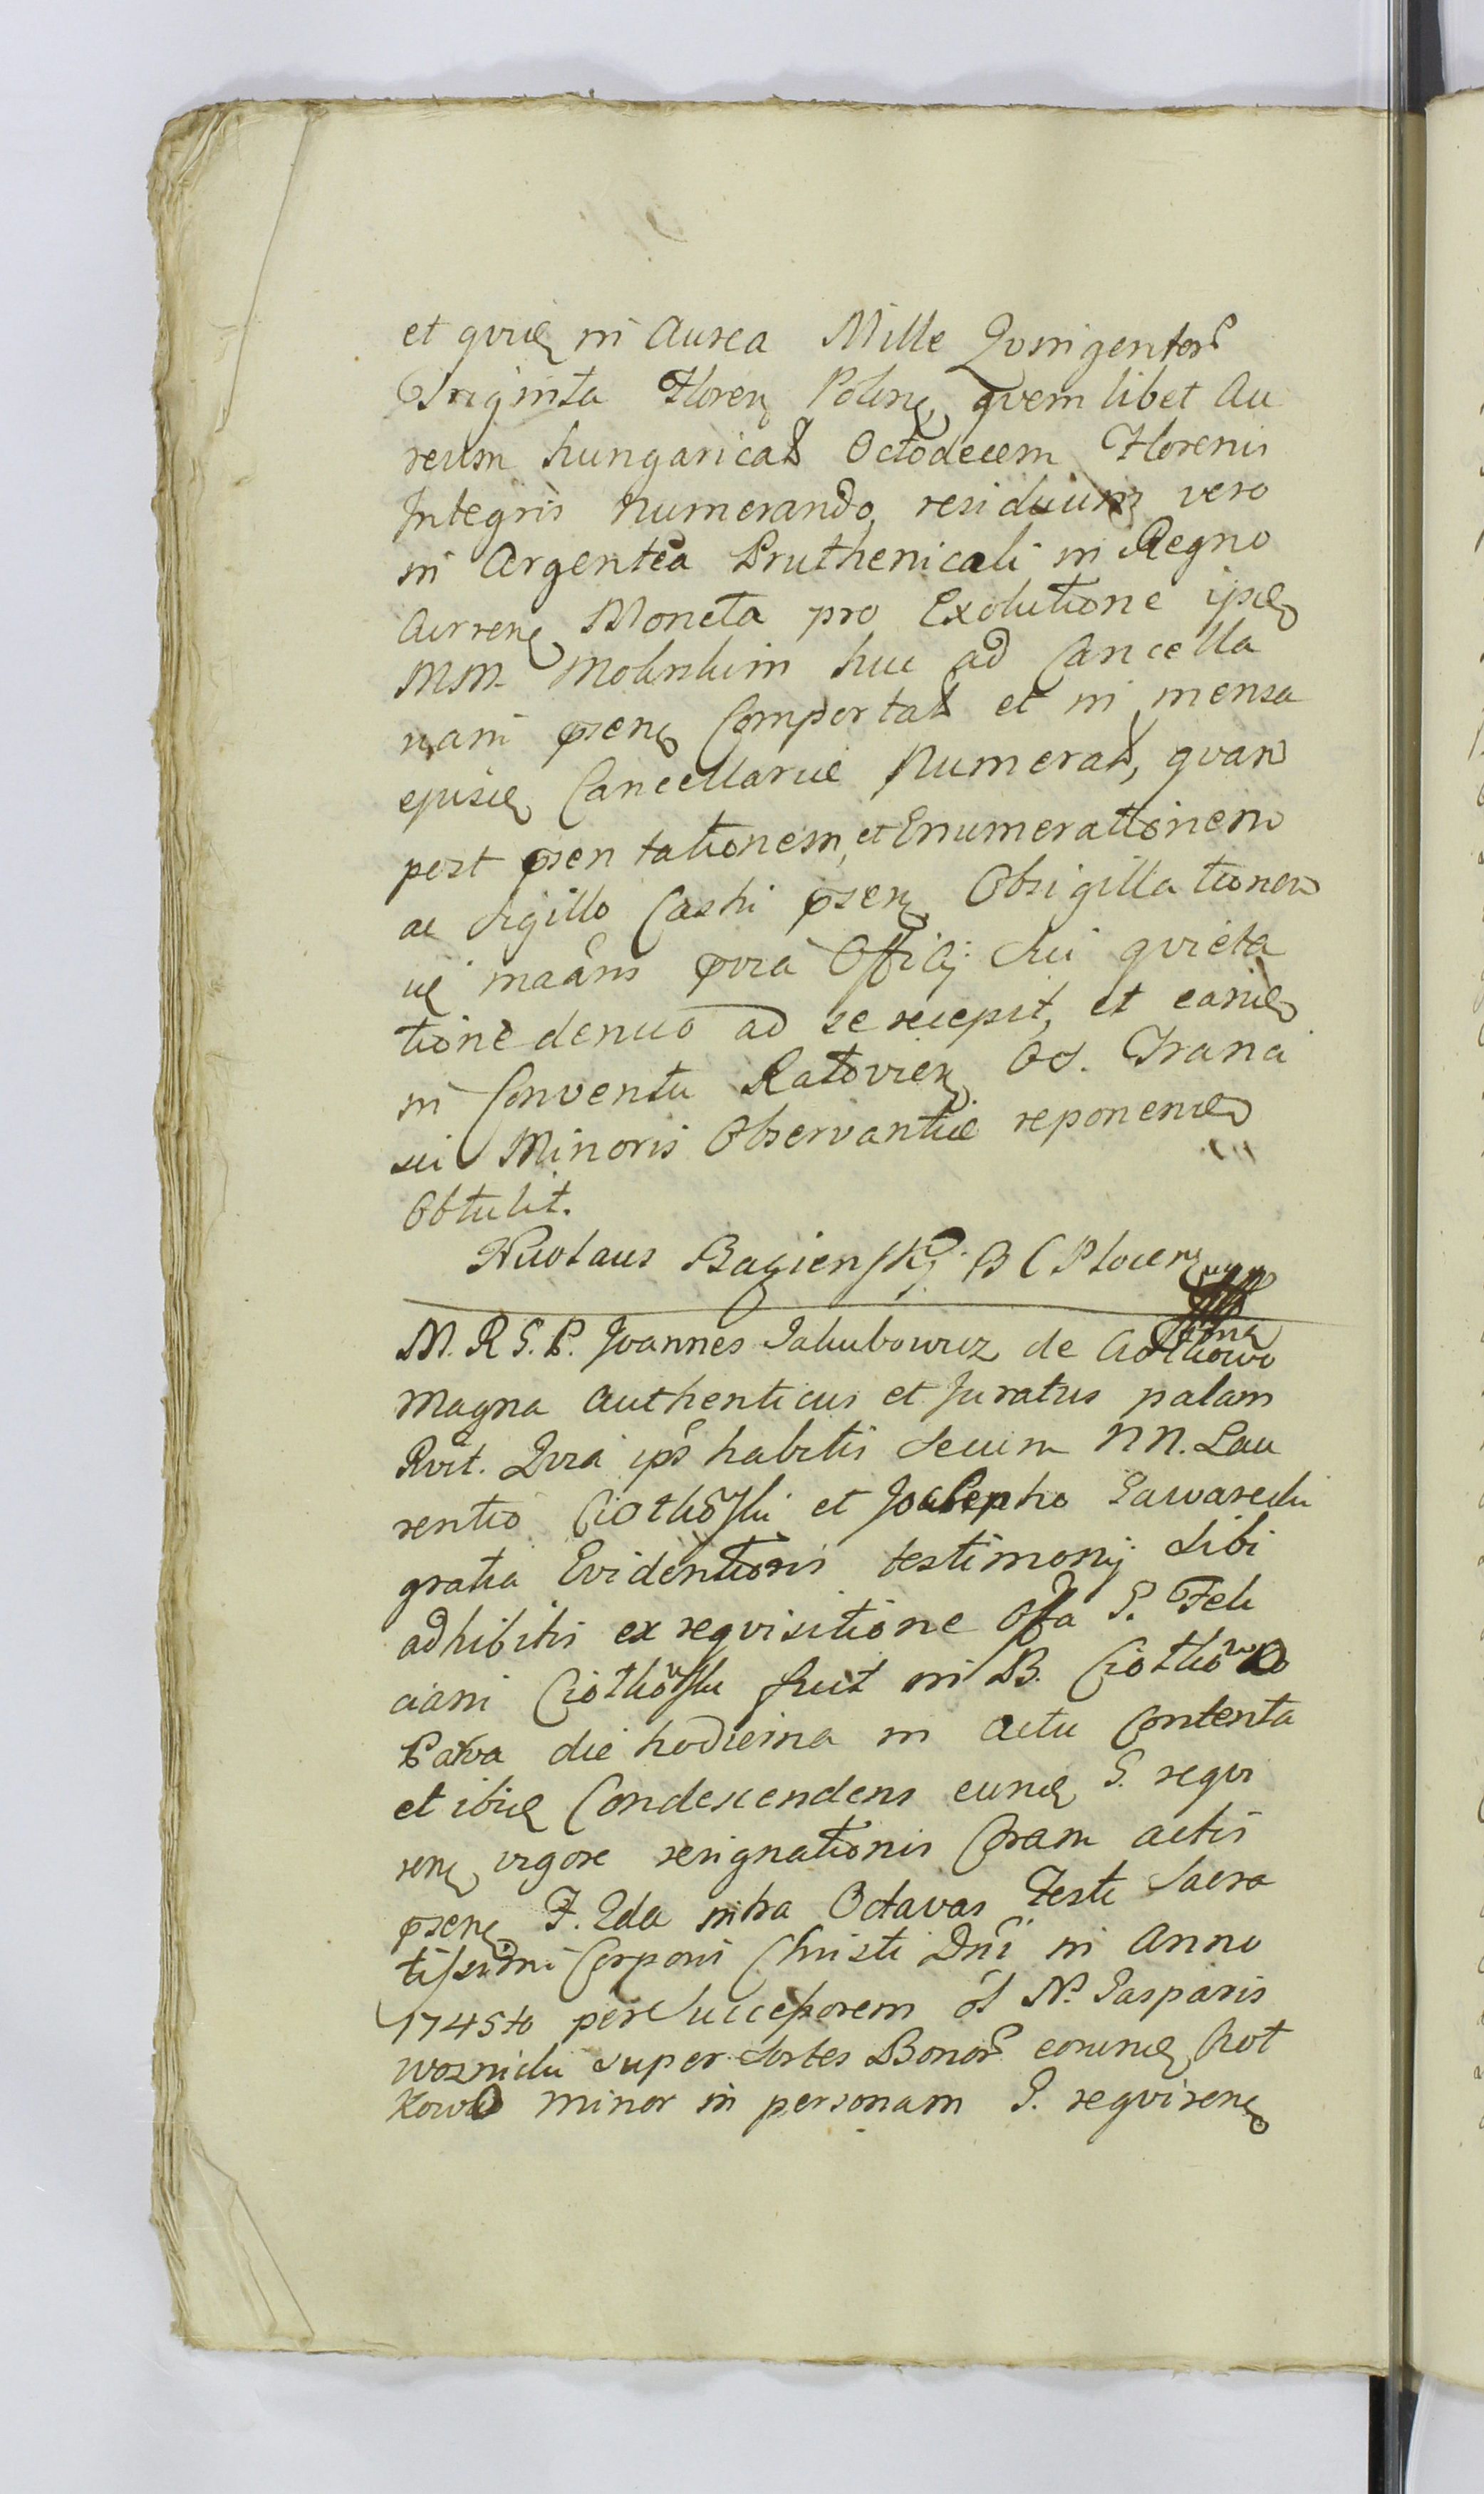 et qvidē in Aurea Mille Qvingentorͫ
Triginta Floren̄ Polon̄, qvem libet Au
reum hungaricał Octodecem Florenis
Integris numerando, residuum vero
in Argentea Pruthenicali in Regno
Curren̄ Moneta pro Exolutione ipsiꝰ
MM. Molinskim huc ad Cancella
riam p̄sen̄ Comportał et in mensa
ejusdē Cancellariæ Numerał, qvam
post p̄sen tationem, et Enumerationem
ac Sigillo Castri p̄sen̄ Obsigillationem
in maāns p̄via Officij Sui qvieta
tione denuo ad se recepit, et eandē
in Conventu Ratovien̄ Od. Franci
sci Minoris Observantiæ reponendē
Obtulit.
Nicolaus Bagienskj B C Plocen̄
M. R S. P. Joannes Jakubowicz de Ciołkowo
Magna Authenticus et Juratus palam
Rvit. Qvia ip̄s habitis Secum NN. Lau
rentio Ciołkōski et Josepho Gawarecki
gratia Evidentioris testimonij Sibi
adhibitis ex reqvisitione Offa G. Feli
ciani Ciołkowski fuit in B. Ciołkowo
Parva die hodierna in actu Contenta
et ibidē Condescendens eundē G. reqvi
ren̄ vigore resignationis Coram actis
p̄sen̄ F. 2da intra Octavas Festi Sacra
tissimi Corporis Christi Dn̄i in Anno
1745to per Successorem ol N. Gasparis
Woznicki super Sortes Bonorͫ eorundē Ciot
kowo minor in personam G. reqviren̄